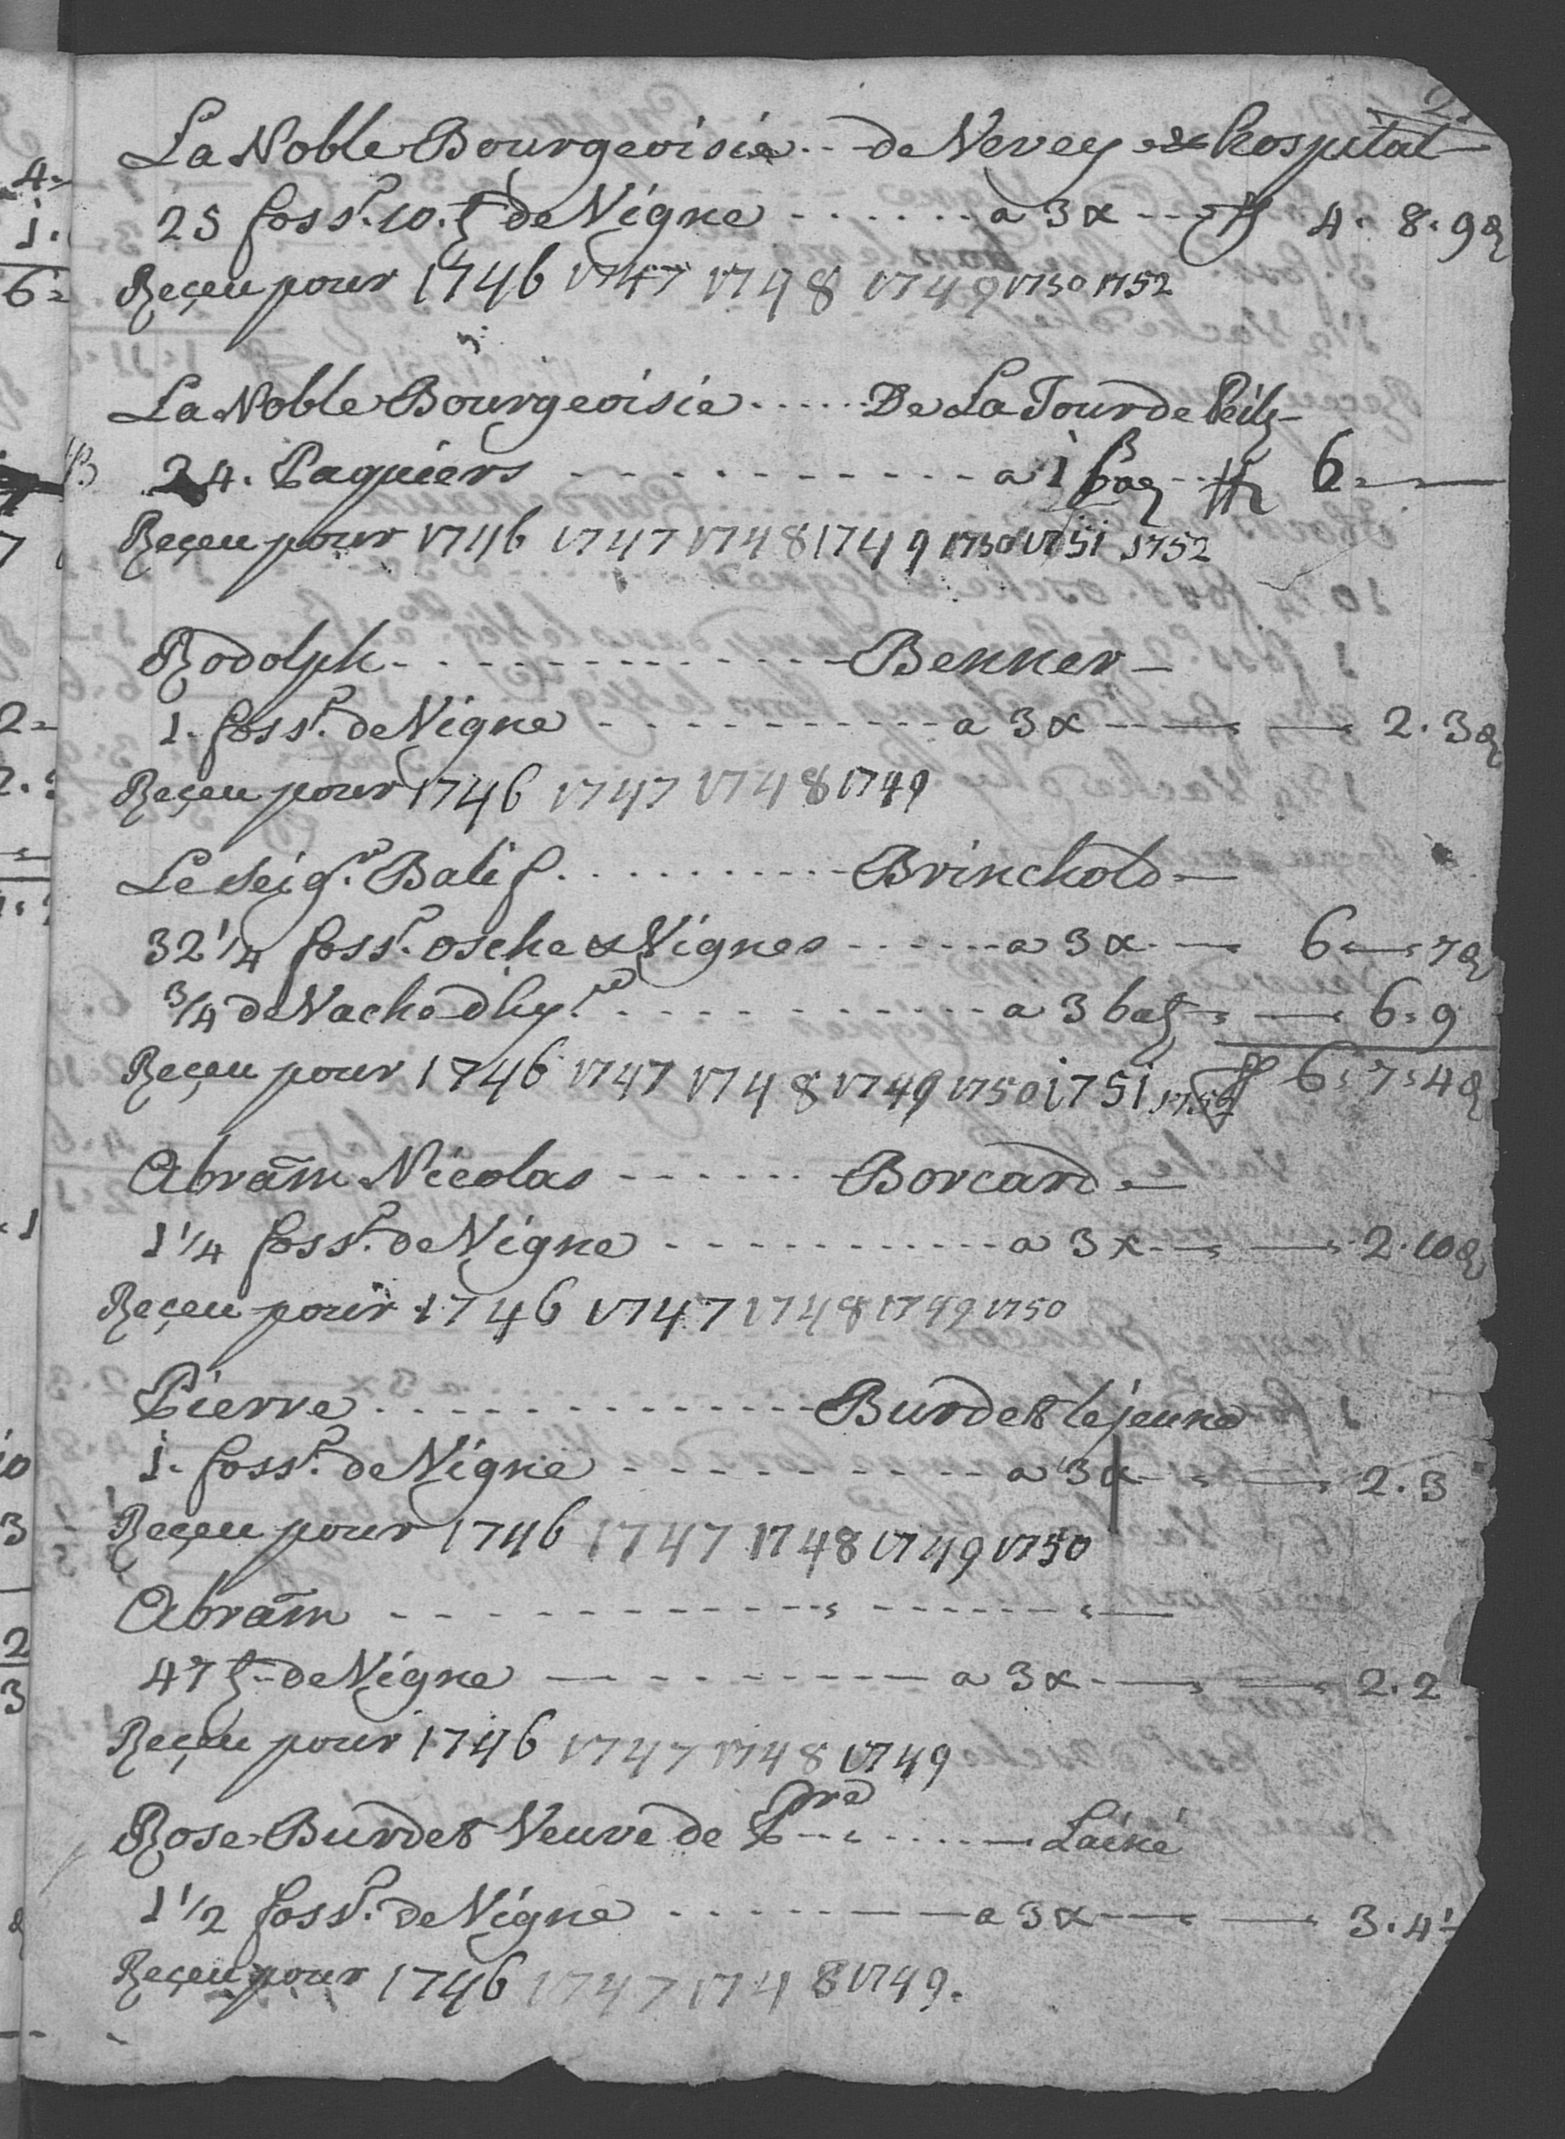 La Noble Bourgeoisie de Vevey & hospital
25 foss.r 10. t de Vigne a 3 x ff 4. 8. 9 d
Reçeu pour 1746 1747 1748 1749 1750 1752
La Noble Bourgeoisie De La Tour de Peilz
24. Paquiers a 1 baz ff 6
Reçeu pour 1746 1747 1748 1749 1750 1751 1752
Rodolph Benner
1. foss.r de Vigne a 3 x 2. 3 d
Reçeu pour 1746 1747 1748 1749
Le Seig.r Balif Brinchold
32 1/4 foss.r osche & Vignes a 3 x 6 7 d
3/4 de Vache dhy.r a 3 batz 6. 9
Reçeu pour 1746 1747 1748 1749 1750 1751 1752 ff 6. 7. 4 d
Abram Nicolas Borcard
1 1/4 foss.r de Vigne a 3 x 2. 10 d
Reçeu pour 1746 1747 1748 1749 1750
Pierre Burdet le jeune
1. foss.r de Vigne a 3 x 2. 3
Reçeu pour 1746 1747 1748 1749 1750
Abram
47 t de Vigne a 3 x 2. 2
Reçeu pour 1746 1747 1748 1749
Rose Burdet Veuve de Prre Lainé
1 1/2 foss.r de Vigne a 3 x 3. 4
Reçeu pour 1746 1747 1748 1749.